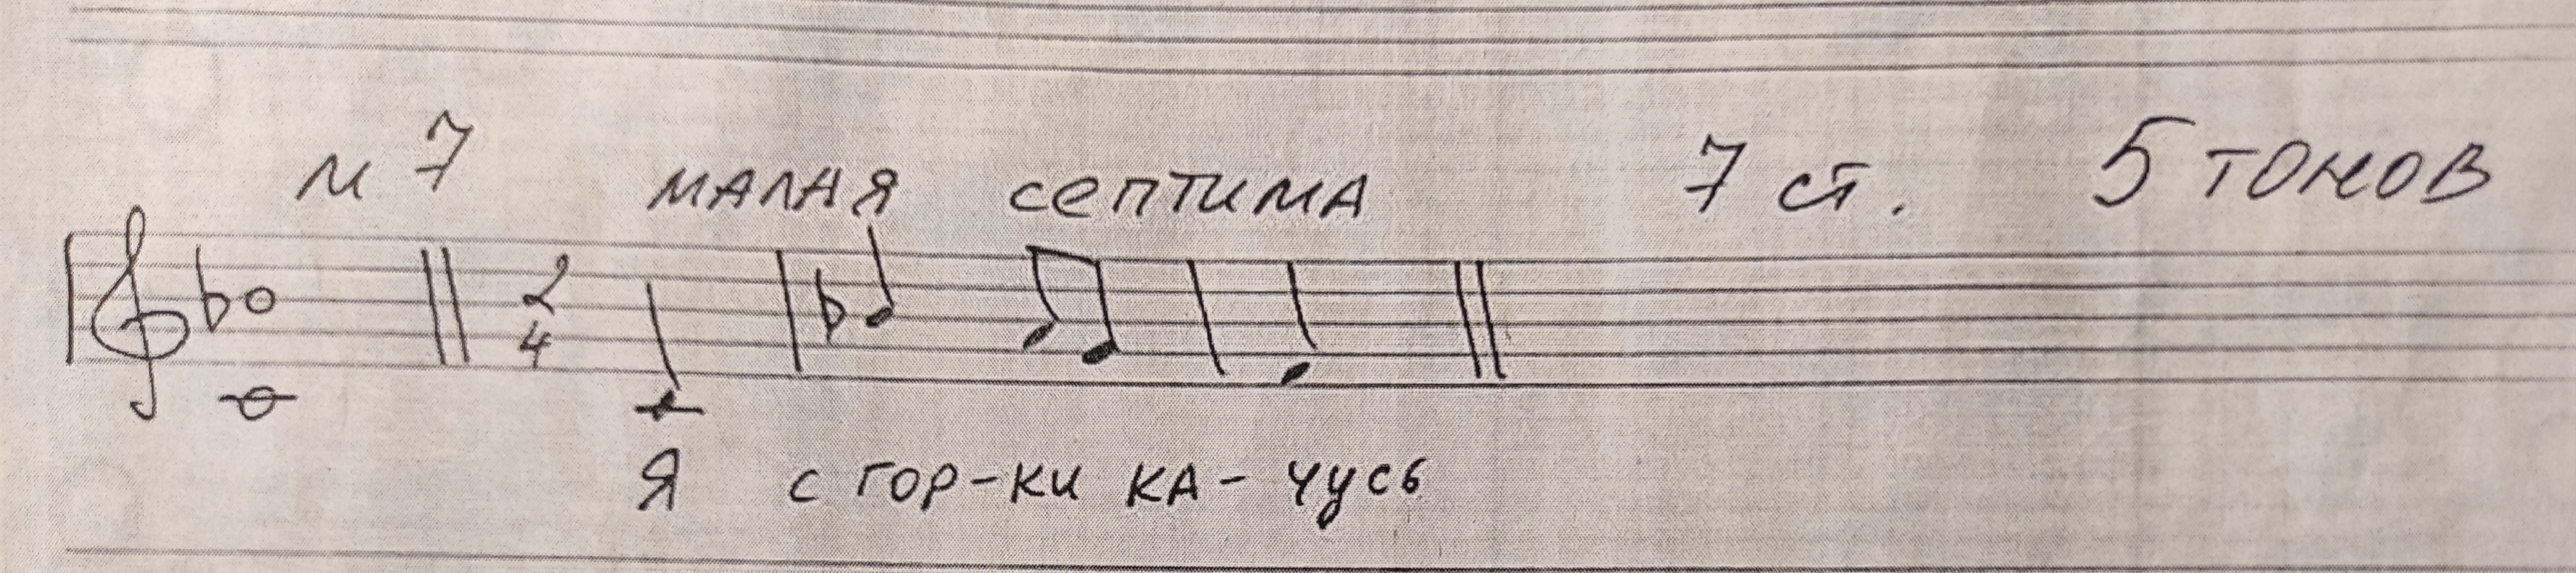 м 7 малая септима 7 ст. 5 тонов
2
4
Я с гор-ки ка-чусь